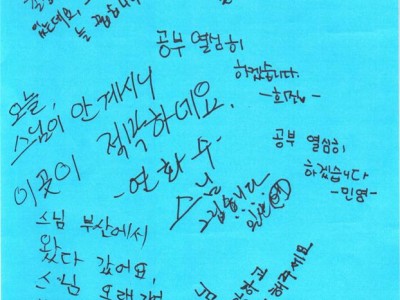 있는데요,
늘
공부 열심히
하겠습니다.
-희정-
오늘,
스님이 안 계시니
이곳이 적막하네요.
-연화수-
공부 열심히
하겠습니다
-민영-
스님
그립습니다.
스님 부산에서
왔다 갔어요,
스님
하고
해주세요